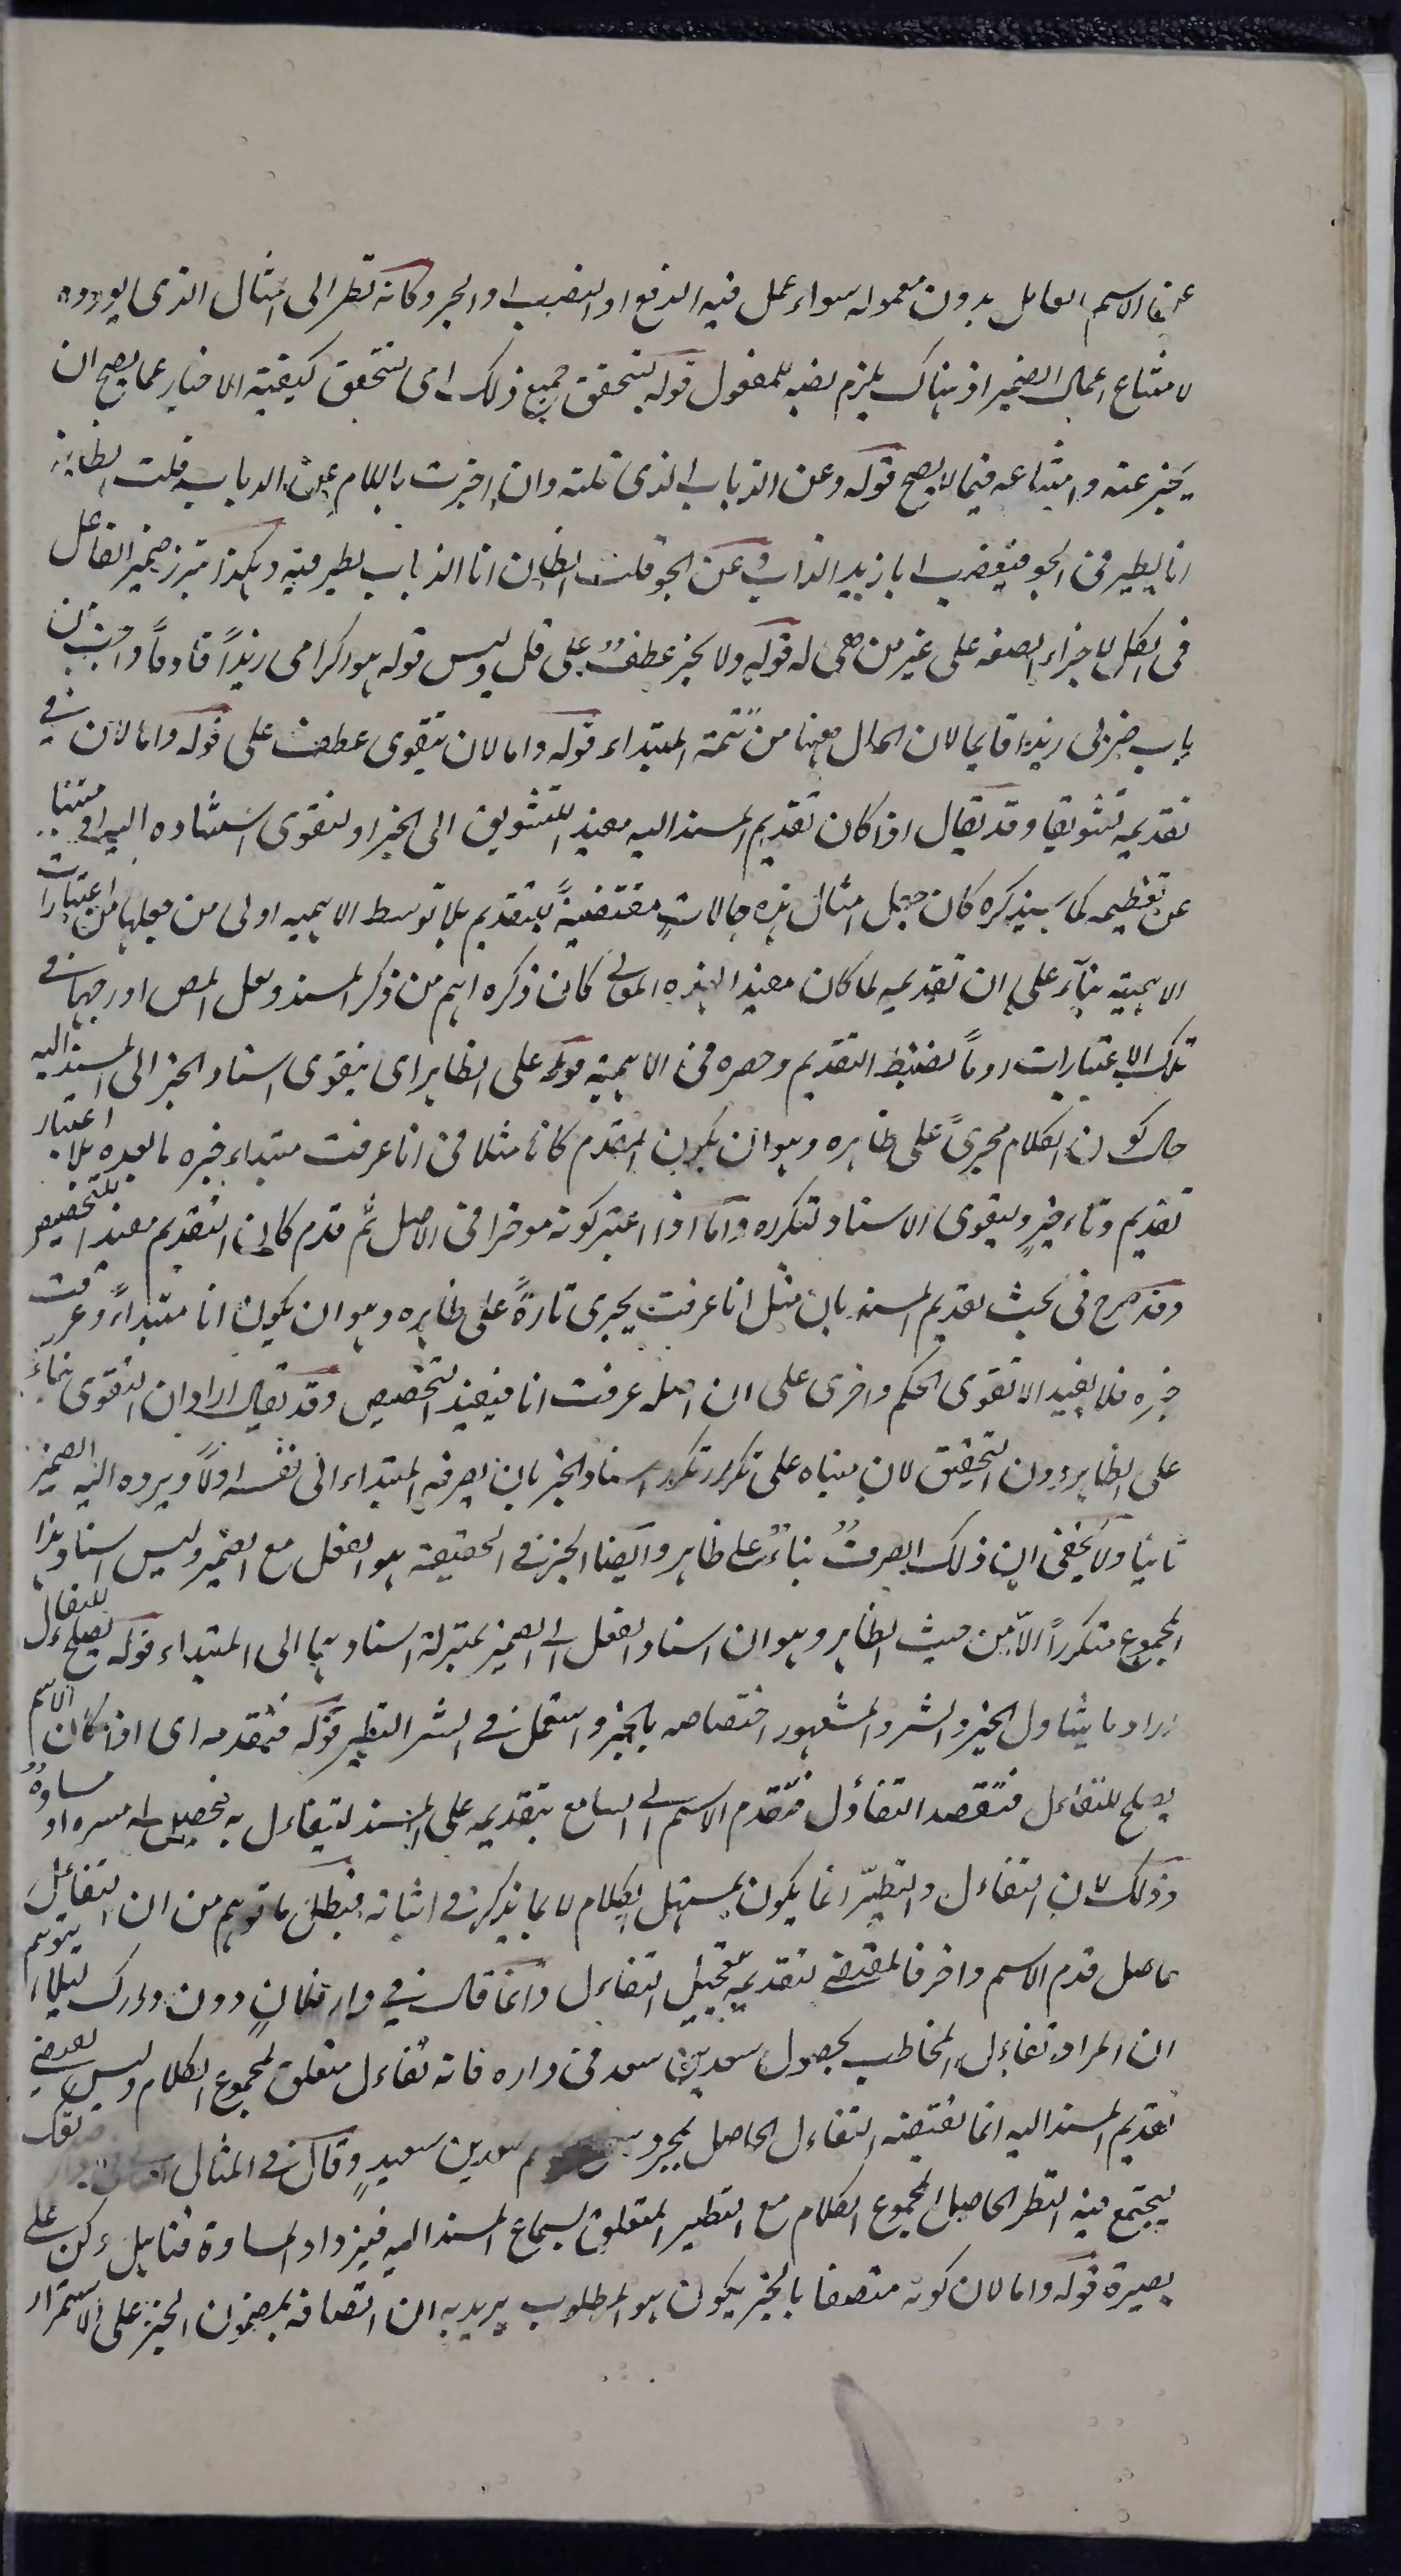 عن الاسم العامل بدون معموله سواء عمل فيه الرفع او النصب او الجر وكانه نظر الى المثال الذى يورده
لامتناع اعمال الضمير اذ هناك يلزم نصبه للمفعول قوله ليتحقق جميع ذلك اى لتتحقق كيفية الاخبار عما يصح ان
يخبر عنه وامتناعه فيما لا يصح قوله وعن الذباب الذى قلته وان اخبرت باللام عن الذباب قلت الطاير
انا يطير فى الجو فيغضب ابا زيد الذباب وعن الجو قلت الطاير انا الذباب يطير فيه وهكذا تبرز ضمير الفاعل
فى الكل لاجراء الصفة على غير من هى له قوله ولا يخبر عطف على قل وليس قوله هو اكرامى زيدا قادما من
باب ضربى زيدا قايما لان الحال ههنا من تتمة المبتداء قوله واما لان يتقوى عطف على قوله واما لان فى
تقديمه تشويقا وقد يقال اذا كان تقديم المسند اليه مفيد التشويق الى الخبر او لتقوى استناده اليه او
عن تعظيمه كما سيذكره كان جعل امثال هذه حالات مقتضية للتقديم بلا توسط الاهمية اولى من جعلها من اعتبارات
الاهمية بناء على ان تقديمه لما كان مفيدا لهذه المعانى كان ذكره اهم من ذكر المسند ولعل المص ادرجها فى
تلك الاعتبارات روما لضبط التقديم وحصره فى الاهمية قوله على الظاهر اى يتقوى اسناد الخبر الى المسند اليه
حال كون الكلام مجرى على ظاهره وهو ان يكون المقدم كانا مثلا فى انا عرفت مبتداء خبره ما بعده بلا اعتبار
تقديم وتاخير ويتقوى الاسناد لتكرره واما اذا اعتبر كونه موخرا فى الاصل ثم قدم كان التقديم مفيد التخصيص
وقد صرح فى بحث تقديم المسند بان مثل انا عرفت يجرى تارة على ظاهره وهو ان يكون انا مبتداء وعرفت
خبره فلا يفيد الا تقوى الحكم واخرى على ان اصله عرفت انا فيفيد التخصيص وقد يقال اراد ان التقوى بناء
على الظاهر دون التحقيق لان مبناه على تكرر اسناد الخبر بان يصرفه المبتداء الى نفسه اولا ويرده اليه الضمير
ثانيا ولا يخفى ان ذلك الصرف بناء على ظاهر وايضا الخبر فى الحقيقة هو الفعل مع الضمير وليس اسناد هذا
المجموع متكررا الا من حيث الظاهر وهو ان اسناد الفعل الى الضمير بمنزلة اسنادهما الى المبتداء قوله يصلح للتفاءل
اراد ما يتناول الخير والشر والمشهور اختصاصه بالخير واستعمل فى الشر التطير قوله فتقدمه اى اذا كان الاسم
يصلح للتفاءل فتقصد التفاؤل فتقدم الاسم الى السامع بتقديمه على المسند ليتفاءل به فحصل له مسرة او مساوة
وذلك لان التفاءل والتطير انما يكون بمستهل الكلام لا بما يذكر فى اثنائه فبطل ما توهم من ان التفاءل
حاصل قدم الاسم واخر فالمقتضى لتقديمه تعجيل التفاءل وانما قال فى دار فلان دون دارك ليلا يتوهم
ان المراد تفاءل المخاطب بحصول سعد بن سعد فى داره فانه تفاءل متعلق لمجموع الكلام وليس
تقديم المسند اليه انما يقتضيه التفاءل الحاصل بمجرد سعد بن سعيد وقال فى المثال
ليجتمع فيه التطير الحاصل لمجموع الكلام مع التطير المتعلق بسماع المسند اليه فيزداد المساوة فتامل وكن على
بصيرة قوله واما لان كونه متصفا بالخبر يكون هو المطلوب يريد به ان اتصافه بمضمون الخبر على الاستمرار